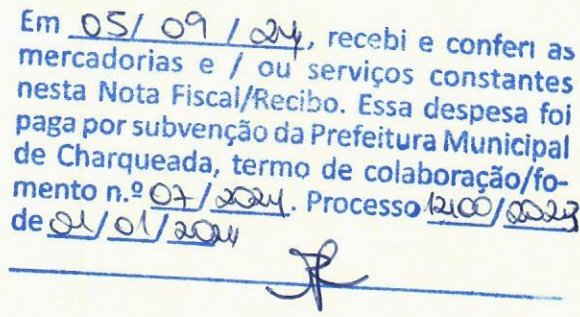 Em 05/09/24, recebi e conferi as
mercadorias e / ou serviços constantes
nesta Nota Fiscal/Recibo. Essa despesa foi
paga por subvenção da Prefeitura Municipal
de Charqueada, termo de colaboração/fo-
mento n.º 07/2024. Processo 1200/2023
de 01/01/2024